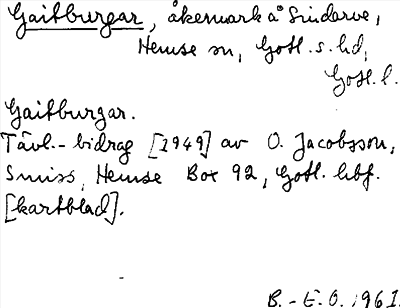 Gaitburgar, åkermark å Sindarve,
Hemse sn, Gotl. s. hd,
Gotl. l.
Gaitburgar.
Tävl.-bidrag [1949] av O. Jacobsson,
Smiss, Hemse Box 92, Gotl. hbf.
[kartblad].
B.-E.O. 1961.